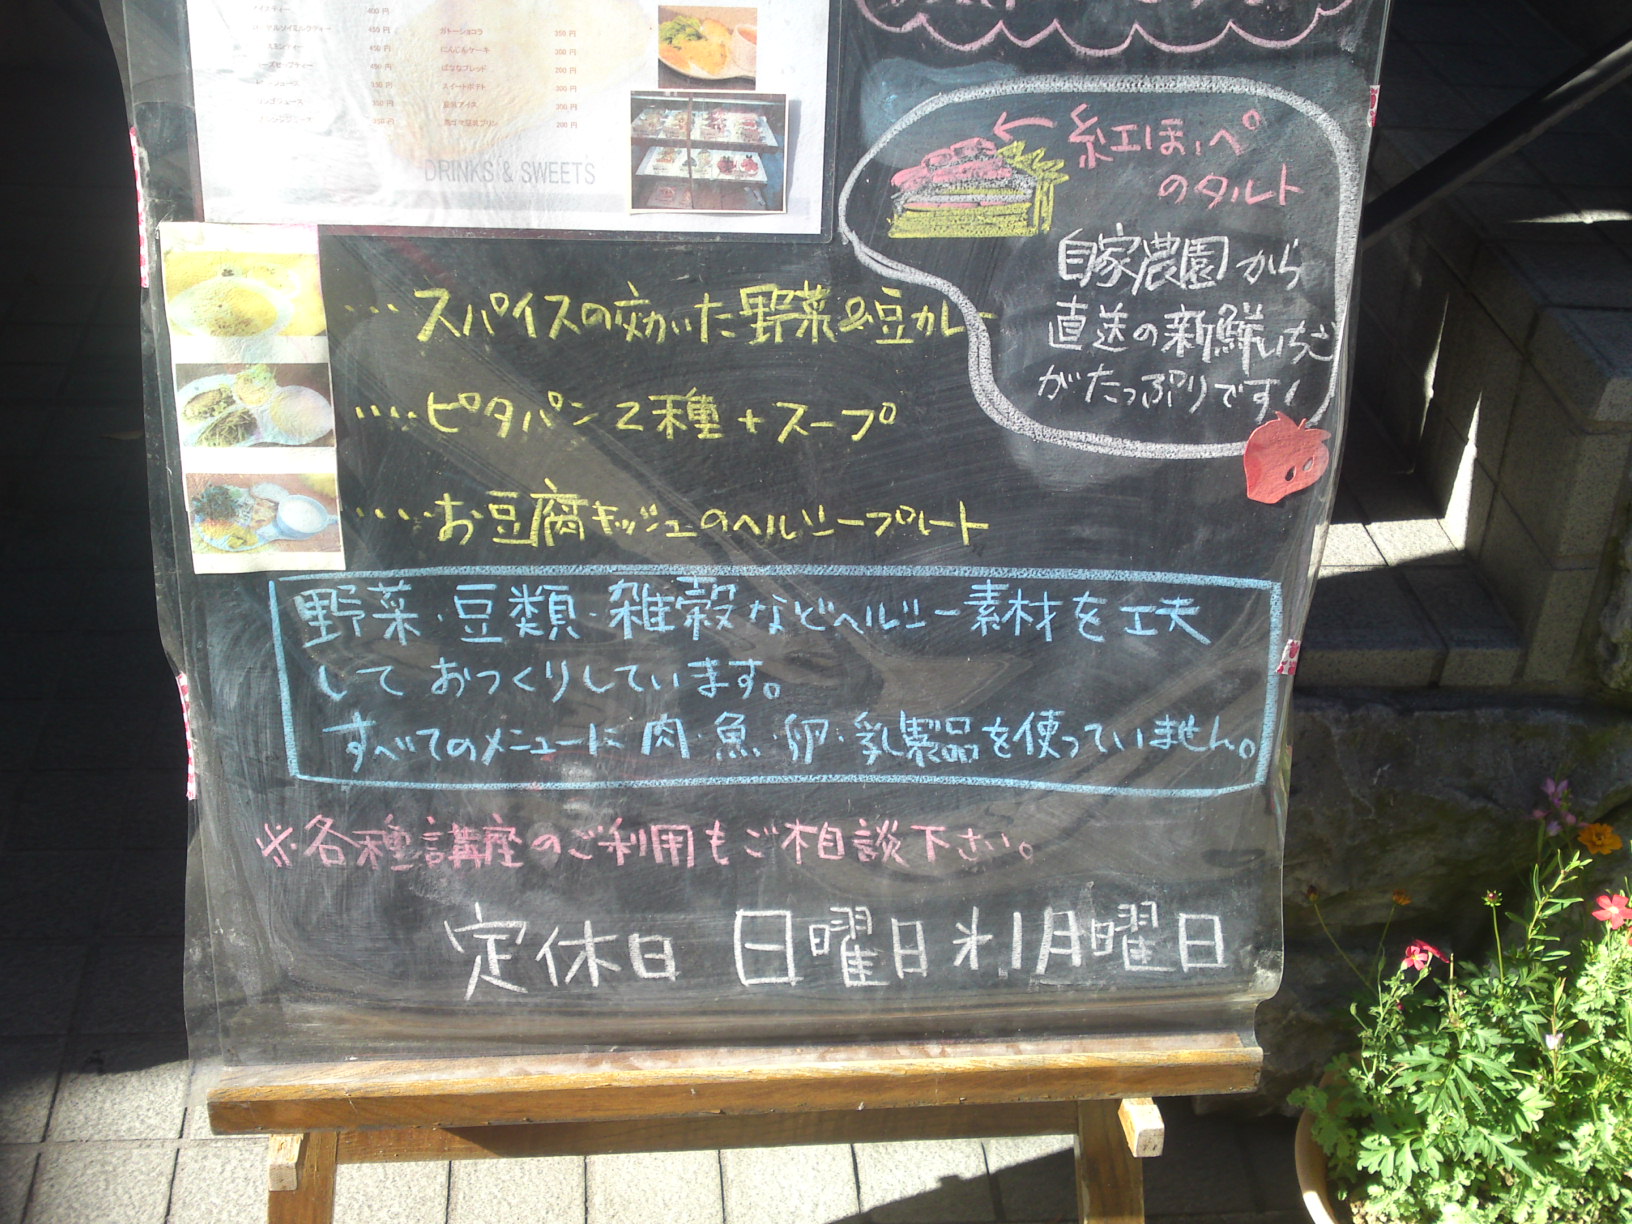 400 円
450 円
450 円
ガトーショコラ 350 円
にんじんケーキ 300 円
ばななブレッド 200 円
スイートポテト 300 円
豆乳アイス 300 円
200 円
DRINKS & SWEETS
←紅ほっぺ
のタルト
自家農園から
直送の新鮮いちご
がたっぷりです!
…スパイスの効いた野菜&豆カレー
….ピタパン2種+スープ
…..お豆腐キッシュのヘルシープレート
野菜・豆類・雑穀などヘルシー素材を工夫
して おつくりしています。
すべてのメニューに肉・魚・卵・乳製品を使っていません。
※各種講座のご利用もご相談下さい。
定休日 日曜日 月曜日